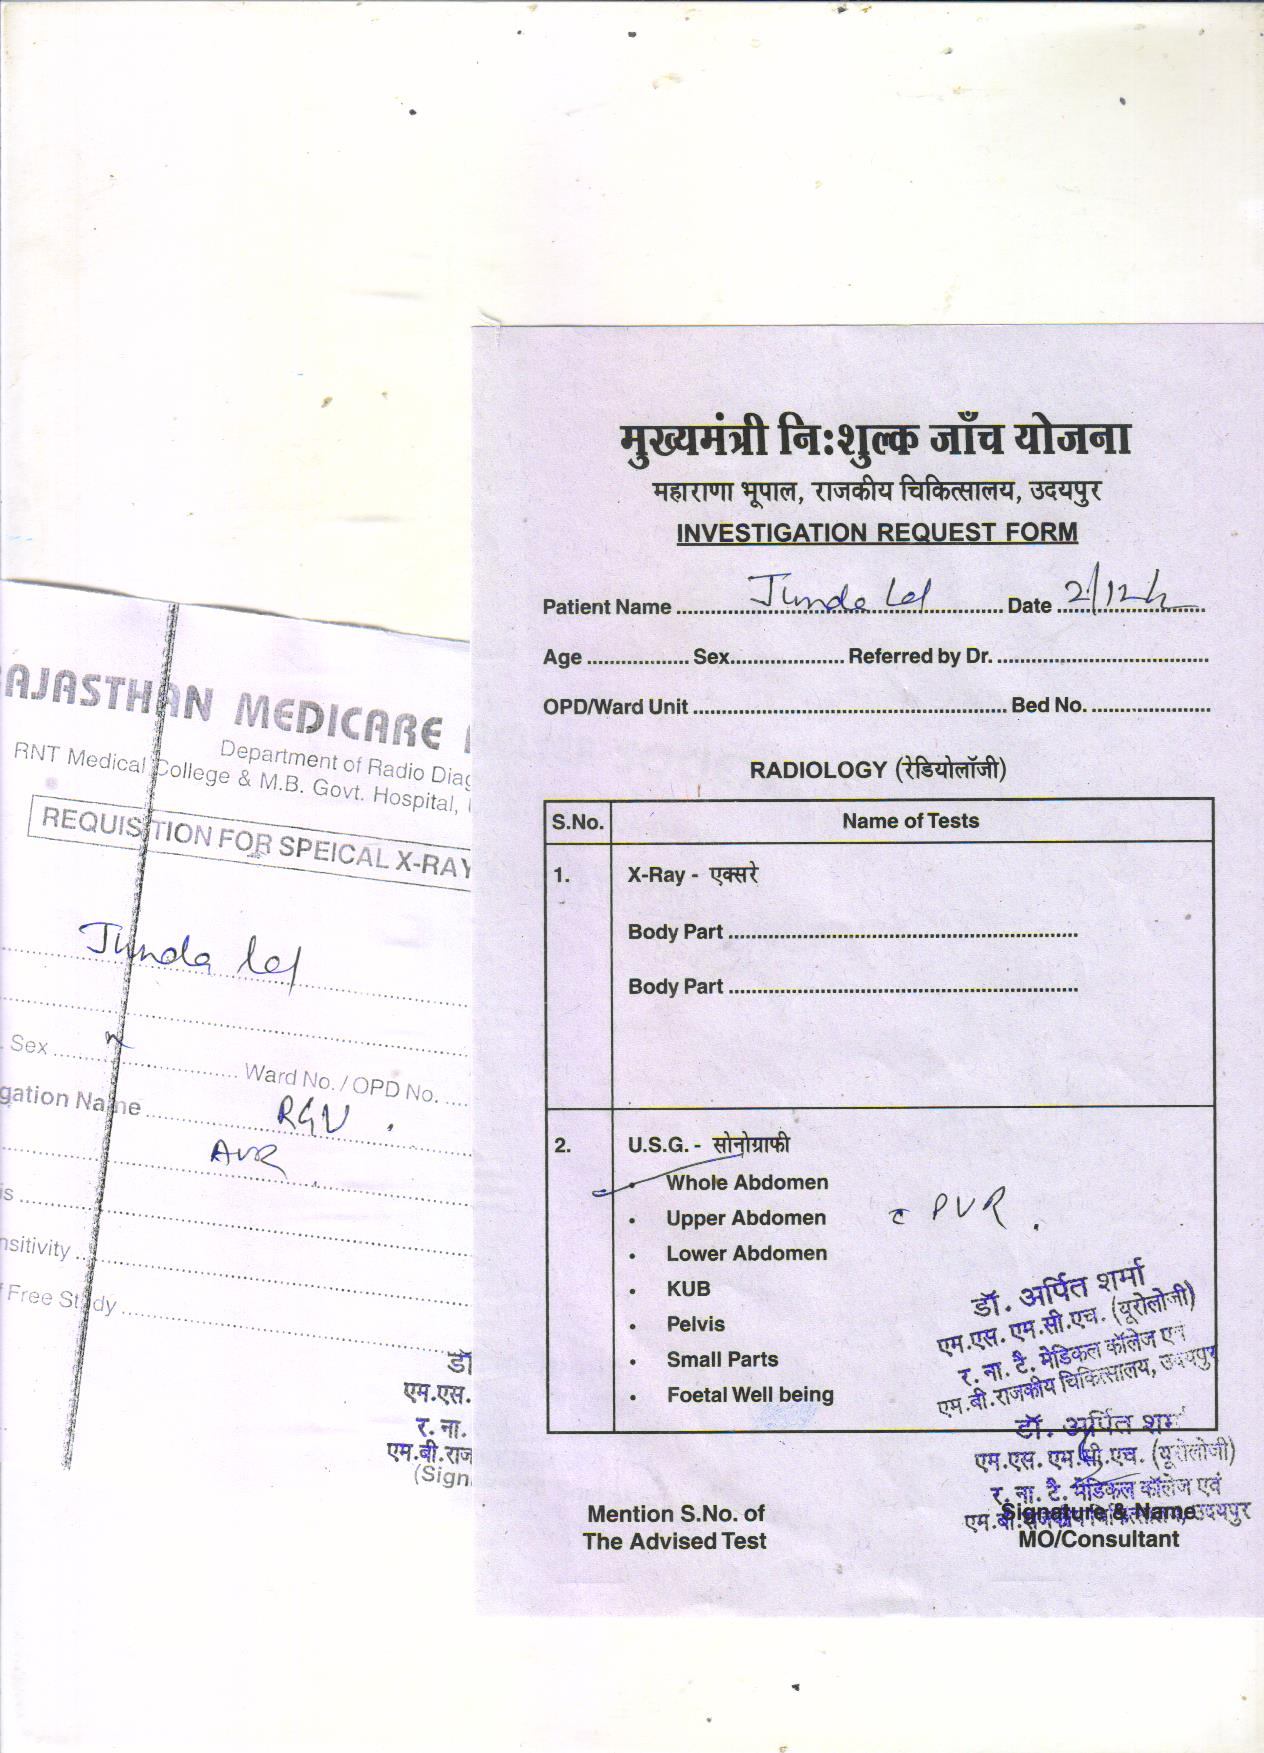 मुख्यमंत्री नि:शुल्क जाँच योजना
महाराणा भूपाल, राजकीय चिकित्सालय, उदयपुर
INVESTIGATION REQUEST FORM
Patient Name Junda Lal Date 2/12/
Age Sex Referred by Dr.
OPD/Ward Unit Bed No.
RADIOLOGY (रेडियोलॉजी)
S.No. Name of Tests
1. X-Ray - एक्सरे
Body Part
Body Part
2. U.S.G. - सोनोग्राफी
• Whole Abdomen
• Upper Abdomen
PVR.
• Lower Abdomen
• KUB
• Pelvis
• Small Parts
• Foetal Well being
डॉ. अर्पित शर्मा
एम.एस. एम.सी.एच. (यूरोलोजी)
र. ना. टै. मेडिकल कॉलेज एवं
एम.बी.राजकीय चिकित्सालय, उदयपुर
डॉ. अर्पित शर्मा
एम.एस. एम.सी.एच. (यूरोलोजी)
र. ना. टै. मेडिकल कॉलेज एवं
एम.बी.राजकीय चिकित्सालय, उदयपुर
Mention S.No. of
The Advised Test
Signature & Name
MO/Consultant
AJASTHAN MEDICARE
Department of Radio Diag
RNT Medical College & M.B. Govt. Hospital,
REQUISITION FOR SPEICAL X-RAY
Junda lal
Sex Ward No. / OPD No.
gation Name RGU.
is
nsitivity
f Free Study
डॉ
एम.एस.
र. ना.
एम.बी.राज
(Sign